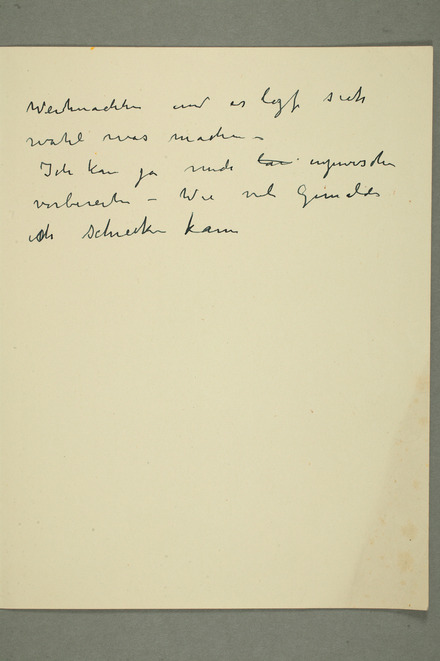 Weihnachten und es legt sich
wohl was machen –
Ich kan ja mich inzwischen
vorbereiten – Wie viel Gemälde
ich schicken kann